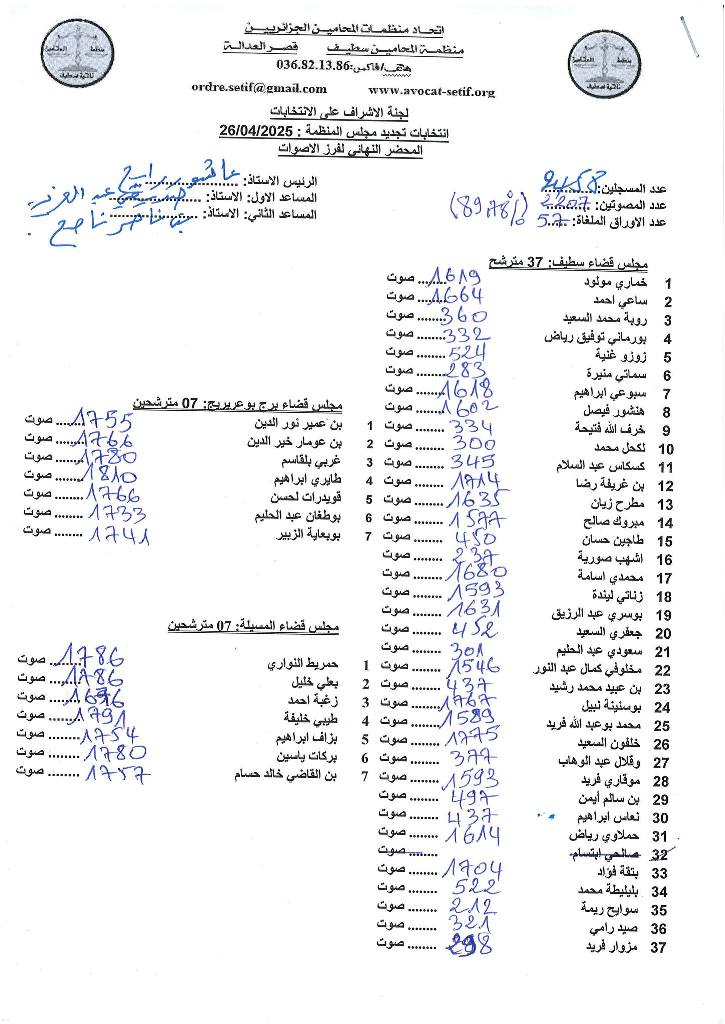 اتحاد منظمات المحامين الجزائريين
منظمة المحامين سطيف قصر العدالة
هاتف/فاكس:036.82.13.86
ordre.setif@gmail.com www.avocat-setif.org
لجنة الاشراف على الانتخابات
انتخابات تجديد مجلس المنظمة : 26/04/2025
المحضر النهائي لفرز الاصوات
عدد المسجلين: 2458
عدد المصوتين: 2207 (89,78%)
عدد الاوراق الملغاة: 57
الرئيس الاستاذ: عاشور رابح
المساعد الاول: الاستاذ: عبد العزيز
المساعد الثاني: الاستاذ: ناصح
مجلس قضاء سطيف: 37 مترشح
1 خماري مولود 1619 صوت
2 ساعي احمد 1664 صوت
3 روبة محمد السعيد 360 صوت
4 بورماني توفيق رياض 332 صوت
5 زوزو غنية 524 صوت
6 سماتي منيرة 283 صوت
7 سبوعي ابراهيم 1618 صوت
8 هنشور فيصل 1602 صوت
9 خرف الله فتيحة 334 صوت
10 لكحل محمد 300 صوت
11 كسكاس عبد السلام 345 صوت
12 بن غريفة رضا 1714 صوت
13 مطرح زيان 1635 صوت
14 مبروك صالح 1577 صوت
15 طاجين حسان 450 صوت
16 اشهب صورية 237 صوت
17 محمدي اسامة 1680 صوت
18 زناتي ليندة 1593 صوت
19 بوسري عبد الرزيق 1631 صوت
20 جعفري السعيد 452 صوت
21 سعودي عبد الحليم 301 صوت
22 مخلوفي كمال عبد النور 1546 صوت
23 بن عبيد محمد رشيد 437 صوت
24 بوسنينة نبيل 1767 صوت
25 محمد بوعبد الله فريد 1589 صوت
26 خلفون السعيد 1775 صوت
27 وقلال عبد الوهاب 377 صوت
28 موقاري فريد 1593 صوت
29 بن سالم أيمن 497 صوت
30 نعاس ابراهيم 437 صوت
31 حملاوي رياض 1614 صوت
32 صالحي ابتسام صوت
33 بتقة فؤاد 1704 صوت
34 بليليطة محمد 522 صوت
35 سوايح ريمة 212 صوت
36 صيد رامي 321 صوت
37 مزوار فريد 298 صوت
مجلس قضاء برج بوعريريج: 07 مترشحين
1 بن عمير نور الدين 1755 صوت
2 بن عومار خير الدين 1766 صوت
3 غربي بلقاسم 1780 صوت
4 طايري ابراهيم 1810 صوت
5 قويدرات لحسن 1766 صوت
6 بوطغان عبد الحليم 1733 صوت
7 بوبعاية الزبير 1741 صوت
مجلس قضاء المسيلة: 07 مترشحين
1 حمريط النواري 1786 صوت
2 بعلي خليل 1786 صوت
3 زغبة احمد صوت
4 طيبي خليفة 1791 صوت
5 بزاف ابراهيم 1754 صوت
6 بركات ياسين 1780 صوت
7 بن القاضي خالد حسام 1757 صوت